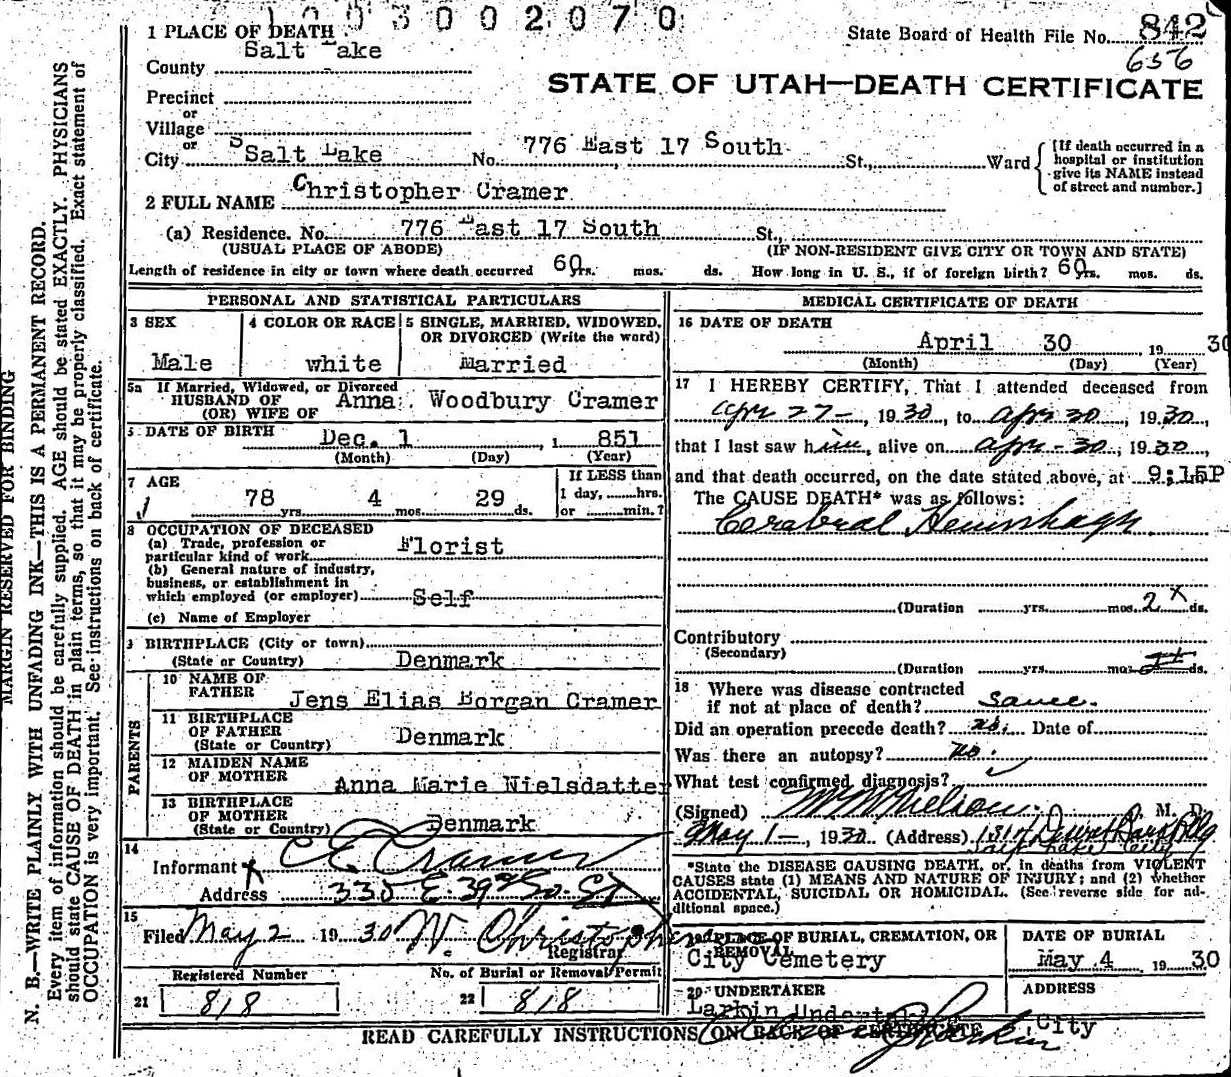 1003002070
1 PLACE OF DEATH
State Board of Health File No. 842
Salt Lake
656
County
STATE OF UTAH—DEATH CERTIFICATE
Precinct
or
Village
or
City Salt Lake No. 776 East 17 South St., Ward
[If death occurred in a hospital or institution give its NAME instead of street and number.]
2 FULL NAME Christopher Cramer
(a) Residence. No. 776 East 17 South St.,
(USUAL PLACE OF ABODE) (IF NON-RESIDENT GIVE CITY OR TOWN AND STATE)
Length of residence in city or town where death occurred 60 yrs. mos. ds. How long in U. S., if of foreign birth? 60 yrs. mos. ds.
PERSONAL AND STATISTICAL PARTICULARS
3 SEX 4 COLOR OR RACE 5 SINGLE, MARRIED, WIDOWED,
OR DIVORCED (Write the word)
Male white Married
5a If Married, Widowed, or Divorced
HUSBAND OF Anna Woodbury Cramer
(OR) WIFE OF
6 DATE OF BIRTH Dec. 1 , 1 851
(Month) (Day) (Year)
7 AGE
78 yrs. 4 mos. 29 ds.
If LESS than
1 day, hrs.
or min.?
8 OCCUPATION OF DECEASED
(a) Trade, profession or
particular kind of work Florist
(b) General nature of industry,
business, or establishment in
which employed (or employer) Self
(c) Name of Employer
9 BIRTHPLACE (City or town)
(State or Country) Denmark
PARENTS
10 NAME OF
FATHER Jens Elias Borgan Cramer
11 BIRTHPLACE
OF FATHER Denmark
(State or Country)
12 MAIDEN NAME
OF MOTHER Anna Marie Nielsdatter
13 BIRTHPLACE
OF MOTHER
(State or Country) Denmark
14
Informant C E Cramer
Address 335 E. 39th So. St
15
Filed May 2 19 30 W. Christopherson
Registrar
Registered Number No. of Burial or Removal Permit
21 818 22 818
MEDICAL CERTIFICATE OF DEATH
16 DATE OF DEATH
April 30 , 19 30
(Month) (Day) (Year)
17 I HEREBY CERTIFY, That I attended deceased from
Apr 27 -, 19 30, to Apr 30, 19 30,
that I last saw him, alive on Apr - 30, 19 30
and that death occurred, on the date stated above, at 9:15P
The CAUSE DEATH* was as follows:
Cerebral Hemorhage
(Duration yrs. mos. 2 ds.
Contributory
(Secondary)
(Duration yrs. mos. ds.
18 Where was disease contracted
if not at place of death? Same.
Did an operation precede death? No. Date of
Was there an autopsy? No.
What test confirmed diagnosis?
(Signed) M. D.
May 1 -, 19 30 (Address)
Salt Lake City
*State the DISEASE CAUSING DEATH, or, in deaths from VIOLENT
CAUSES state (1) MEANS AND NATURE OF INJURY; and (2) whether
ACCIDENTAL, SUICIDAL OR HOMICIDAL. (See reverse side for ad-
ditional space.)
19 PLACE OF BURIAL, CREMATION, OR REMOVAL DATE OF BURIAL
City Cemetery May 4 19 30
20 UNDERTAKER ADDRESS
Larkin City
READ CAREFULLY INSTRUCTIONS ON BACK OF CERTIFICATE
MARGIN RESERVED FOR BINDING
N. B.—WRITE PLAINLY WITH UNFADING INK—THIS IS A PERMANENT RECORD.
Every item of information should be carefully supplied. AGE should be stated EXACTLY. PHYSICIANS
should state CAUSE OF DEATH in plain terms, so that it may be properly classified. Exact statement of
OCCUPATION is very important. See instructions on back of certificate.